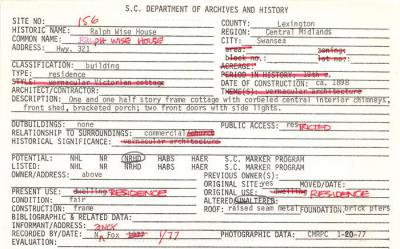 S.C. DEPARTMENT OF ARCHIVES AND HISTORY
SITE NO: 156 COUNTY: Lexington
HISTORIC NAME: Ralph Wise House REGION: Central Midlands
COMMON NAME: RALPH WISE HOUSE CITY: Swansea
ADDRESS: Hwy. 321 area: zoning:
block no.: lot no.:
ACREAGE:
CLASSIFICATION: building
TYPE: residence PERIOD IN HISTORY: 19th c.
STYLE: vernacular Victorian cottage DATE OF CONSTRUCTION: ca. 1898
ARCHITECT/CONTRACTOR: THEME(S): vernacular architecture
DESCRIPTION: One and one half story frame cottage with corbeled central interior chimneys,
front shed, bracketed porch; two front doors with side lights.
OUTBUILDINGS: none PUBLIC ACCESS: resTRICTED
RELATIONSHIP TO SURROUNDINGS: commercial
HISTORICAL SIGNIFICANCE: vernacular architecture
POTENTIAL: NHL NR NRHD HABS HAER S.C. MARKER PROGRAM
LISTED: NHL NR NRHD HABS HAER S.C. MARKER PROGRAM
OWNER/ADDRESS: above PREVIOUS OWNER(S):
ORIGINAL SITE: yes MOVED/DATE:
PRESENT USE: dwelling RESIDENCE ORIGINAL USE: dwelling RESIDENCE
CONDITION: fair ALTERED/UNALTERED:
CONSTRUCTION: frame ROOF: raised seam metal FOUNDATION: brick piers
BIBLIOGRAPHIC & RELATED DATA:
INFORMANT/ADDRESS:
RECORDED BY/DATE: N. Fox 1977 1/77 PHOTOGRAPHIC DATA: CMRPC 1-20-77
EVALUATION: